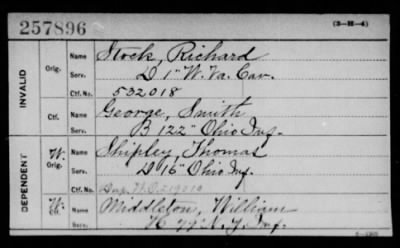 257896
(3-H-4)
INVALID
Orig.
Name Stock, Richard
Serv. D 1" W. Va. Cav.
Ctf. No. 532018
Ctf.
Name George, Smith
Serv. B 122" Ohio Inf.
DEPENDENT
W. Orig.
Name Shipley, Thomas
Serv. D 16" Ohio Inf.
Ctf. No. Dup. W.O. 219010
W. Ctf.
Name Middleton, William
Serv. H 99" N.Y. Inf.